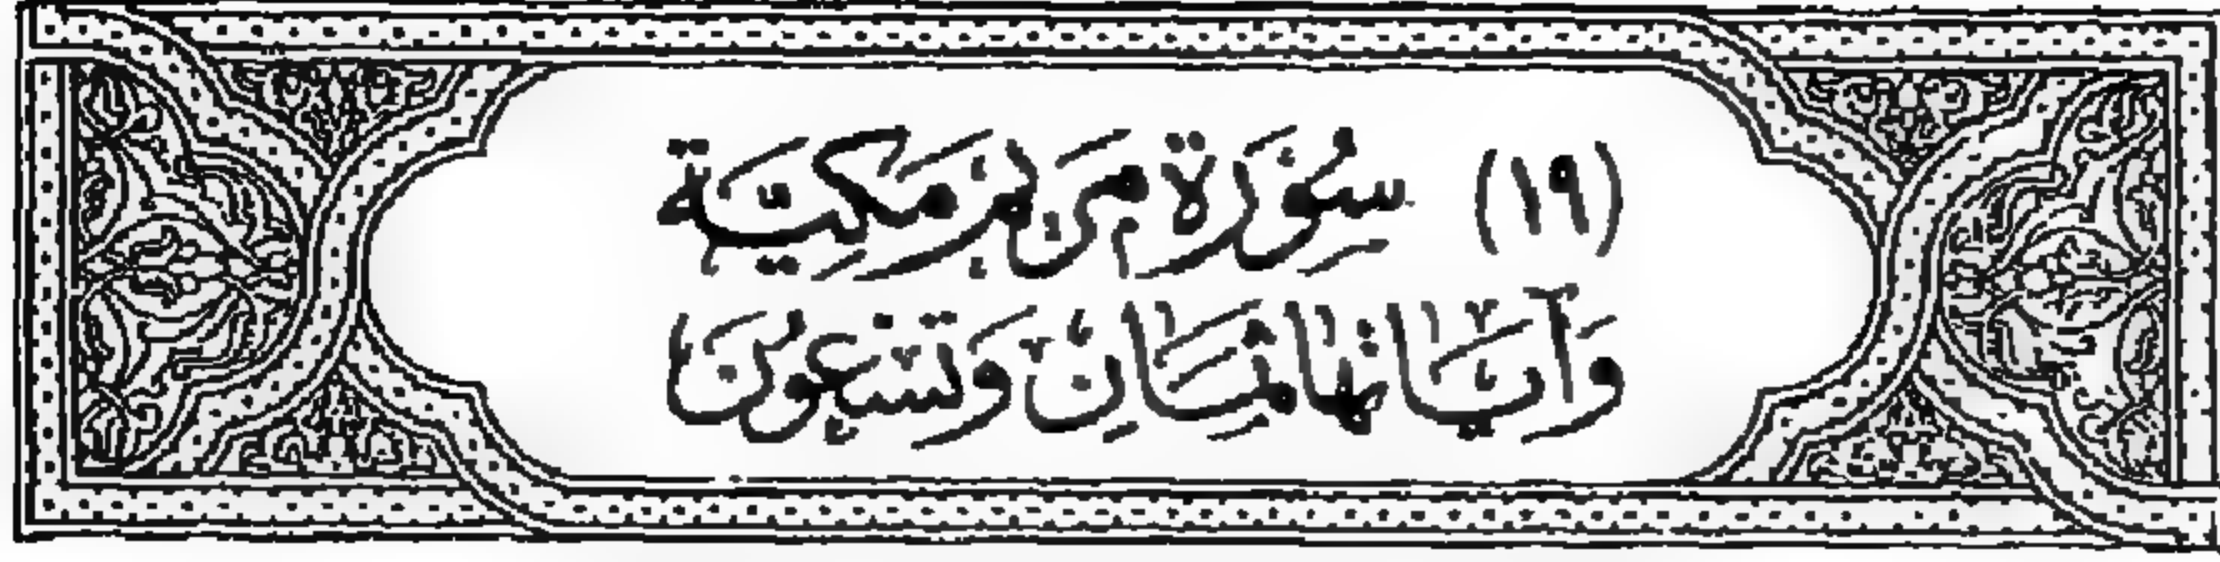 (١٩) سُوْرَةُ مَرْيَمَ مَكِيَّةٌ
وَآيَاتُهَا ثَمَانٍ وَتِسْعُونَ